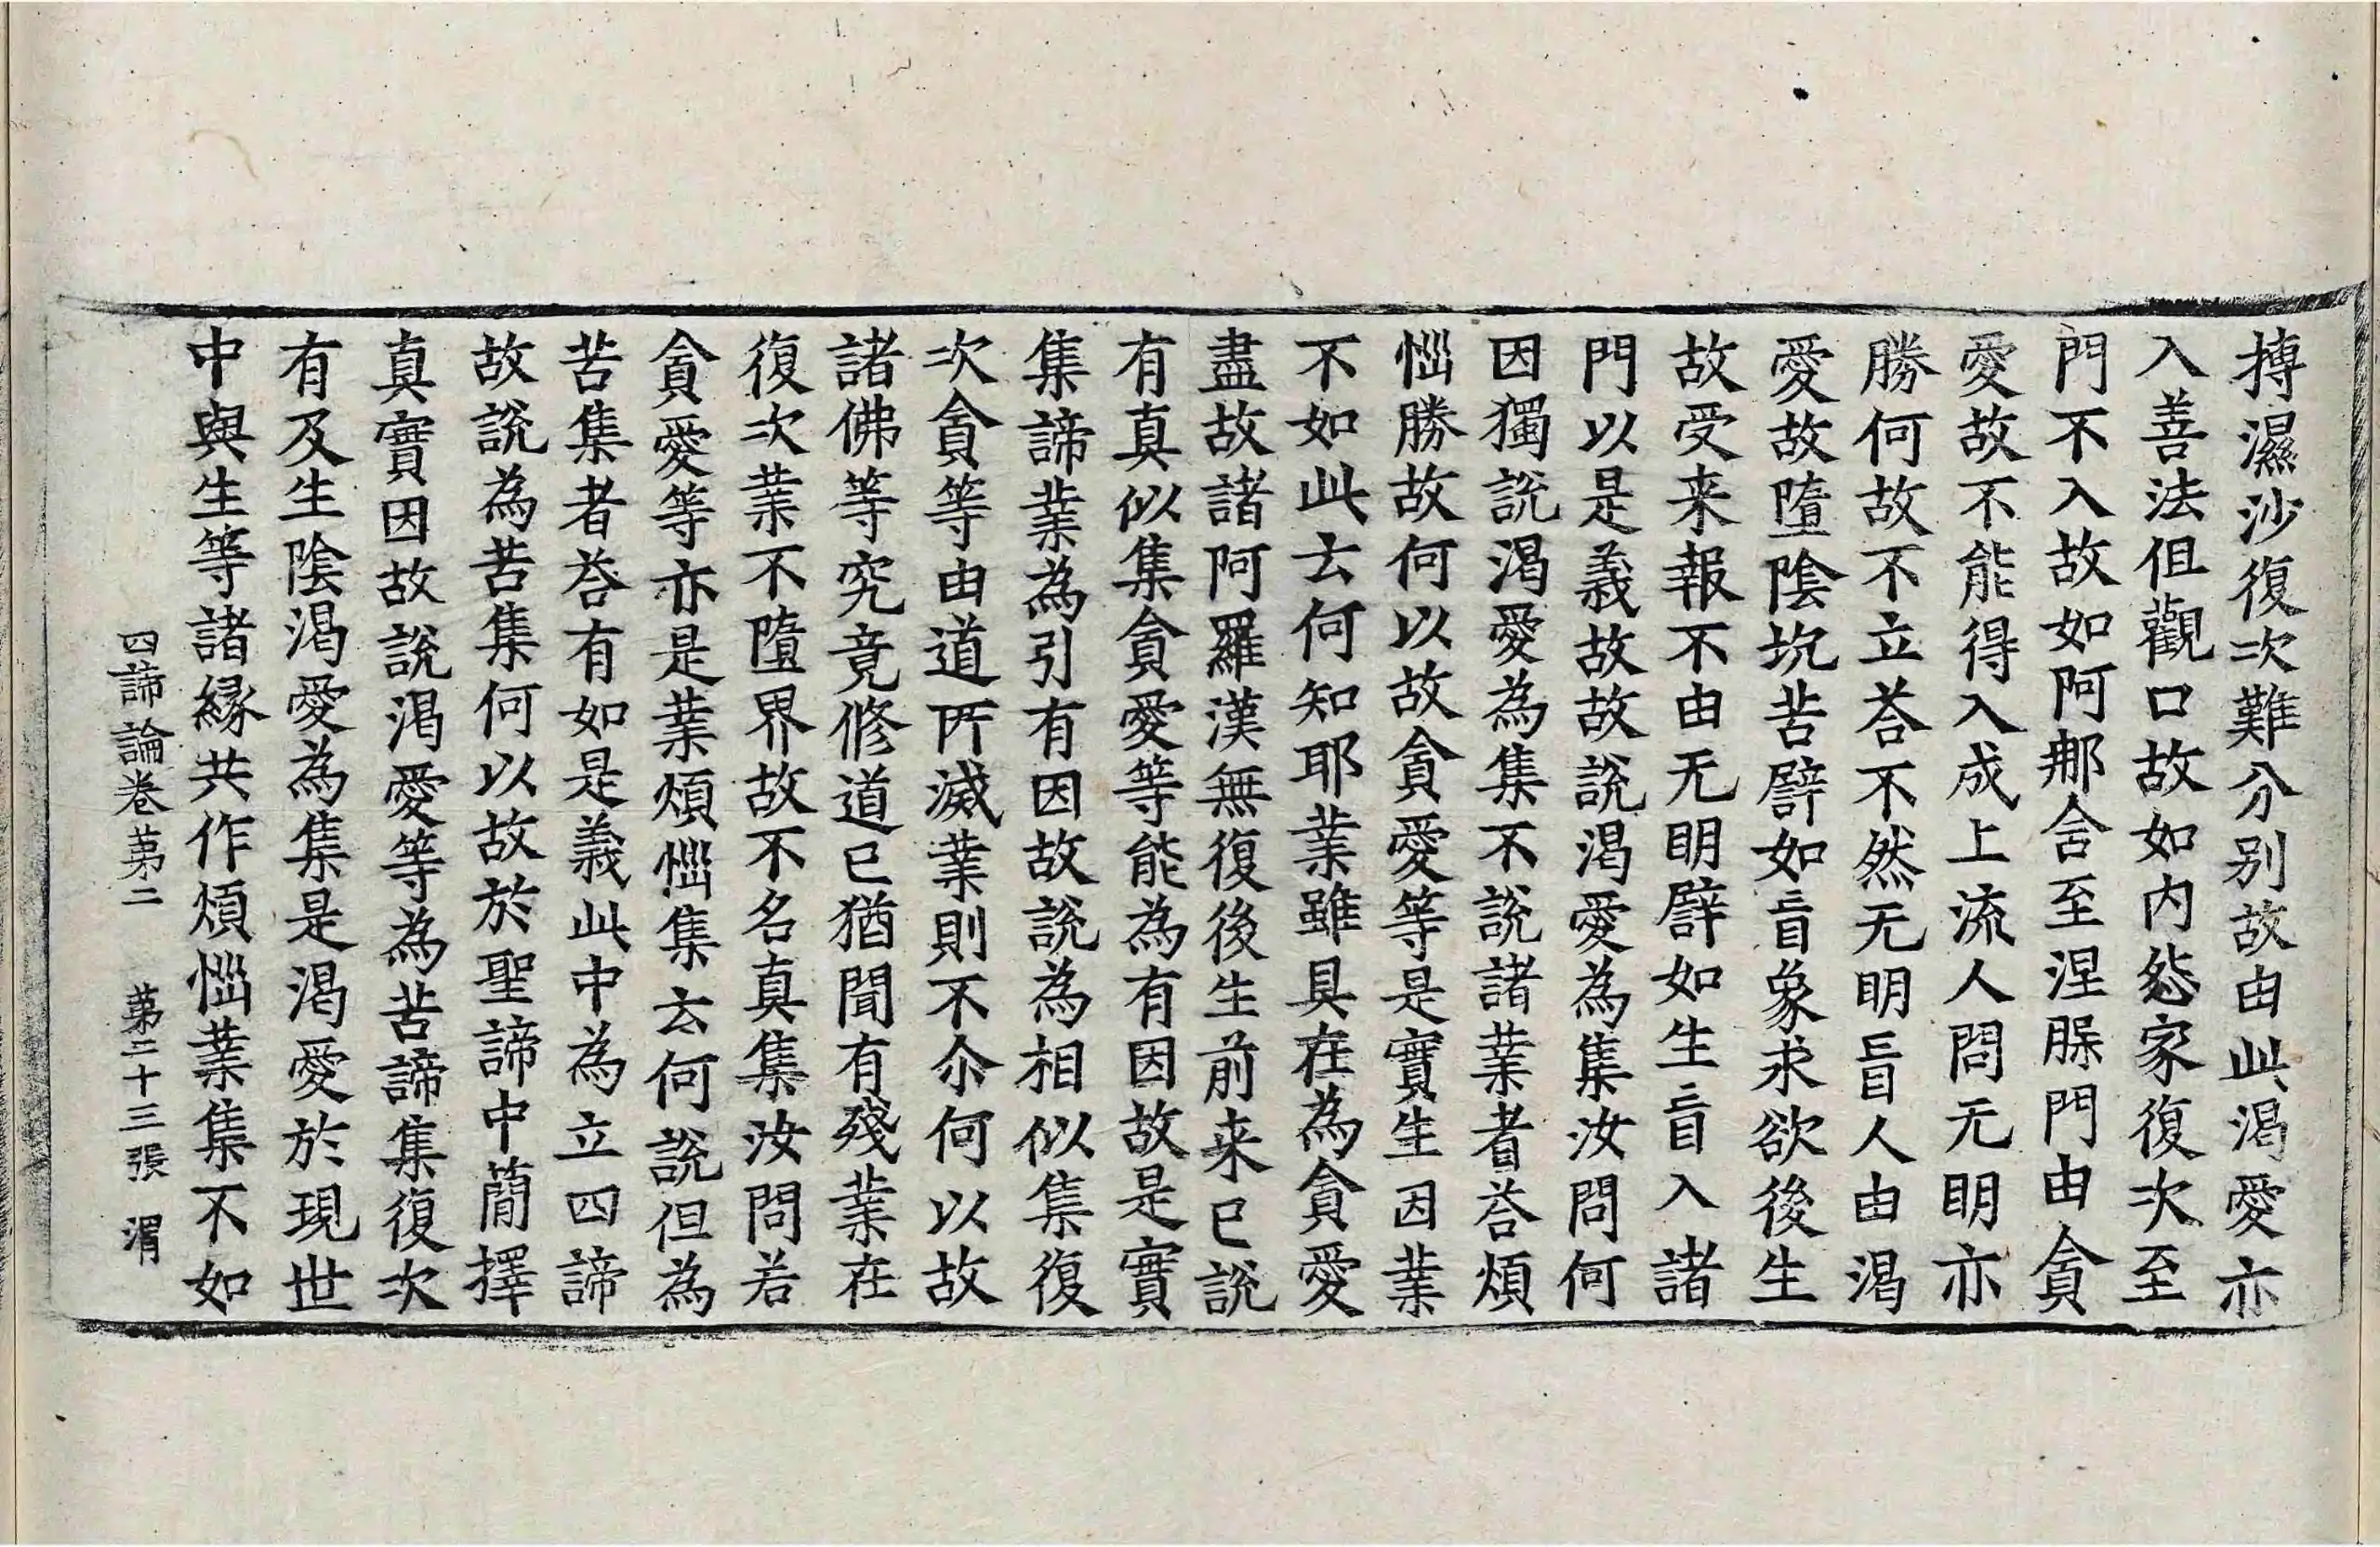 摶濕沙復次難分别故由此渴愛亦
入善法伹觀口故如内怨家復次至
門不入故如阿那舍至涅脲門由貪
愛故不能得入成上流人問无明亦
勝何故不立荅不然无明盲人由渴
愛故墮陰坑苦譬如盲象求欲後生
故受来報不由无明譬如生盲入諸
門以是義故故說渴愛為集汝問何
因獨說渴愛為集不說諸業者荅煩
惱勝故何以故貪愛等是實生因業
不如此云何知耶業雖具在為貪愛
盡故諸阿羅漢無復後生前来已說
有真似集貪愛等能為有因故是實
集諦業為引有因故說為相似集復
次貪等由道所滅業則不尒何以故
諸佛等究竟修道已猶聞有殘業在
復次業不墮界故不名真集汝問若
貪愛等亦是業煩惱集云何說但為
苦集者荅有如是義此中為立四諦
故說為苦集何以故於聖諦中簡擇
真實因故說渴愛等為苦諦集復次
有及生陰渴愛為集是渴愛於現世
中與生等諸緣共作煩惱業集不如
四諦論卷苐二 苐二十三張 渭